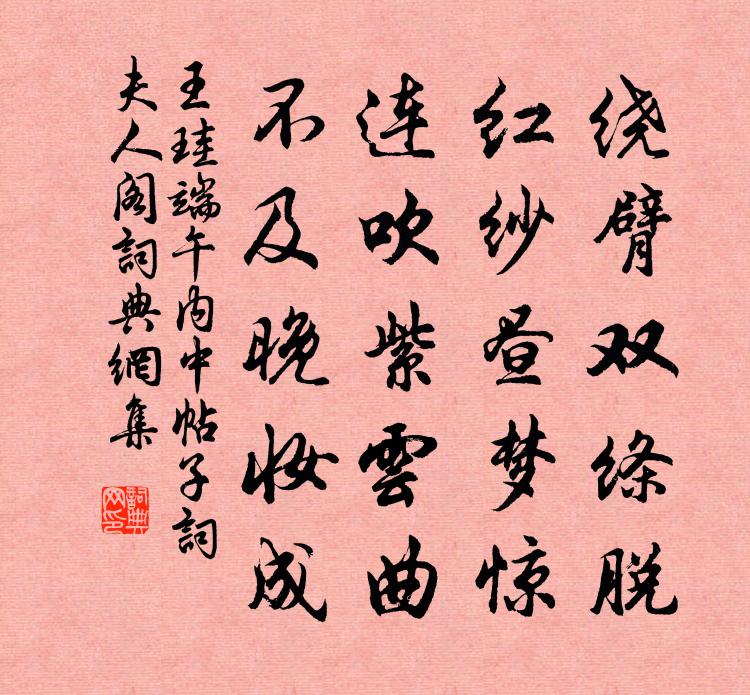 绕臂双绦脱
红纱昼梦惊
连吹紫雲曲
不及晚妆成
王珪端午内中帖子詞
夫人阁詞典網集
詞典网印